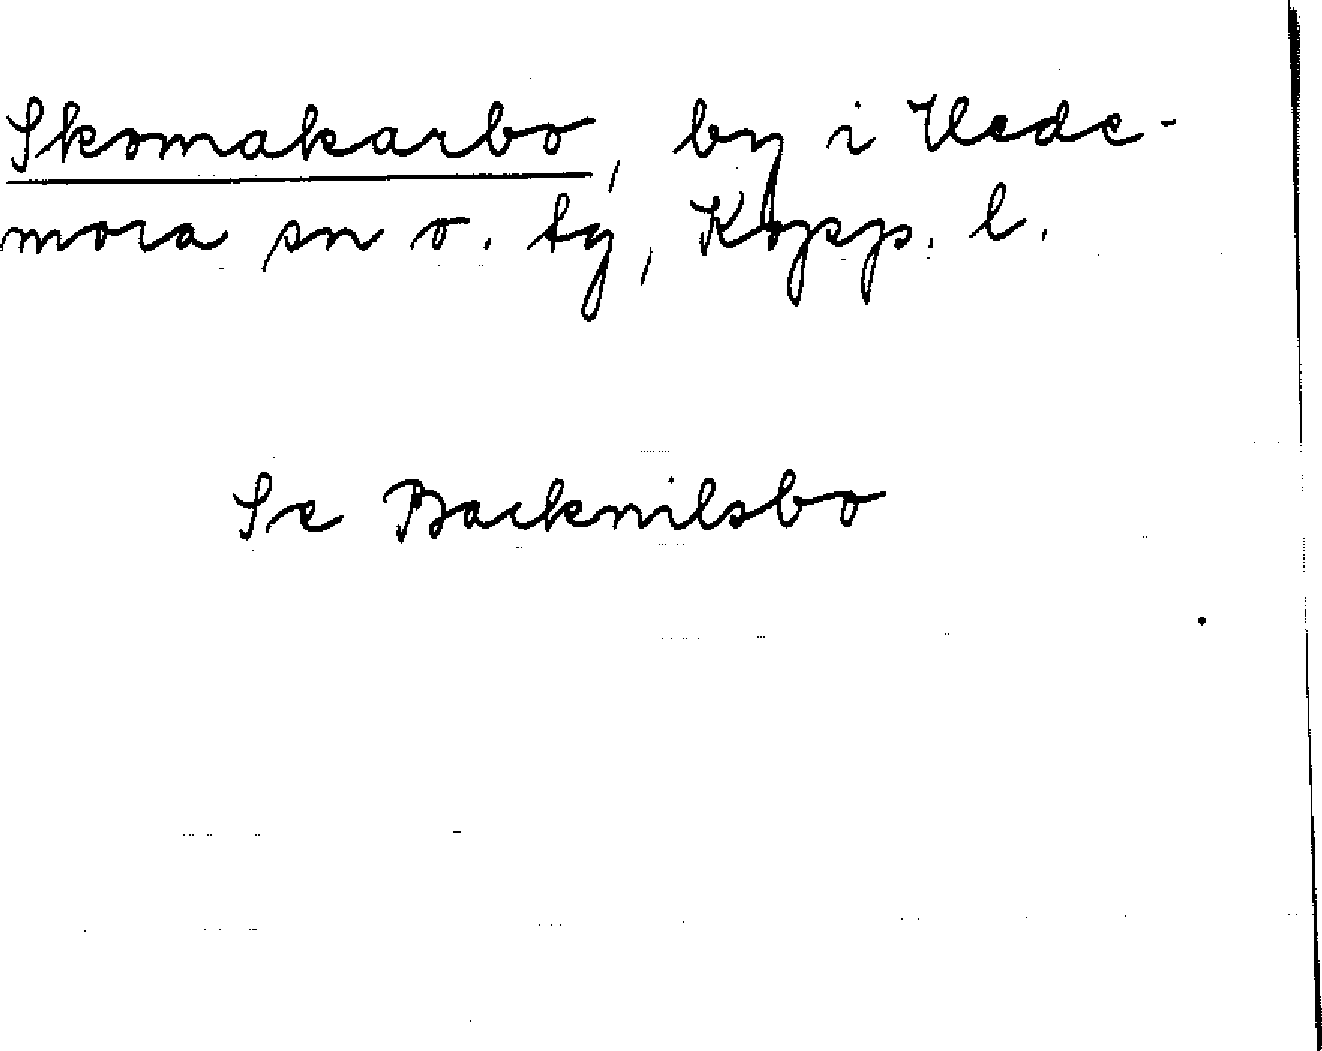 Skomakarbo, by i Hede-
mora sn o. tg, Kopp. l.
Se Backnilsbo